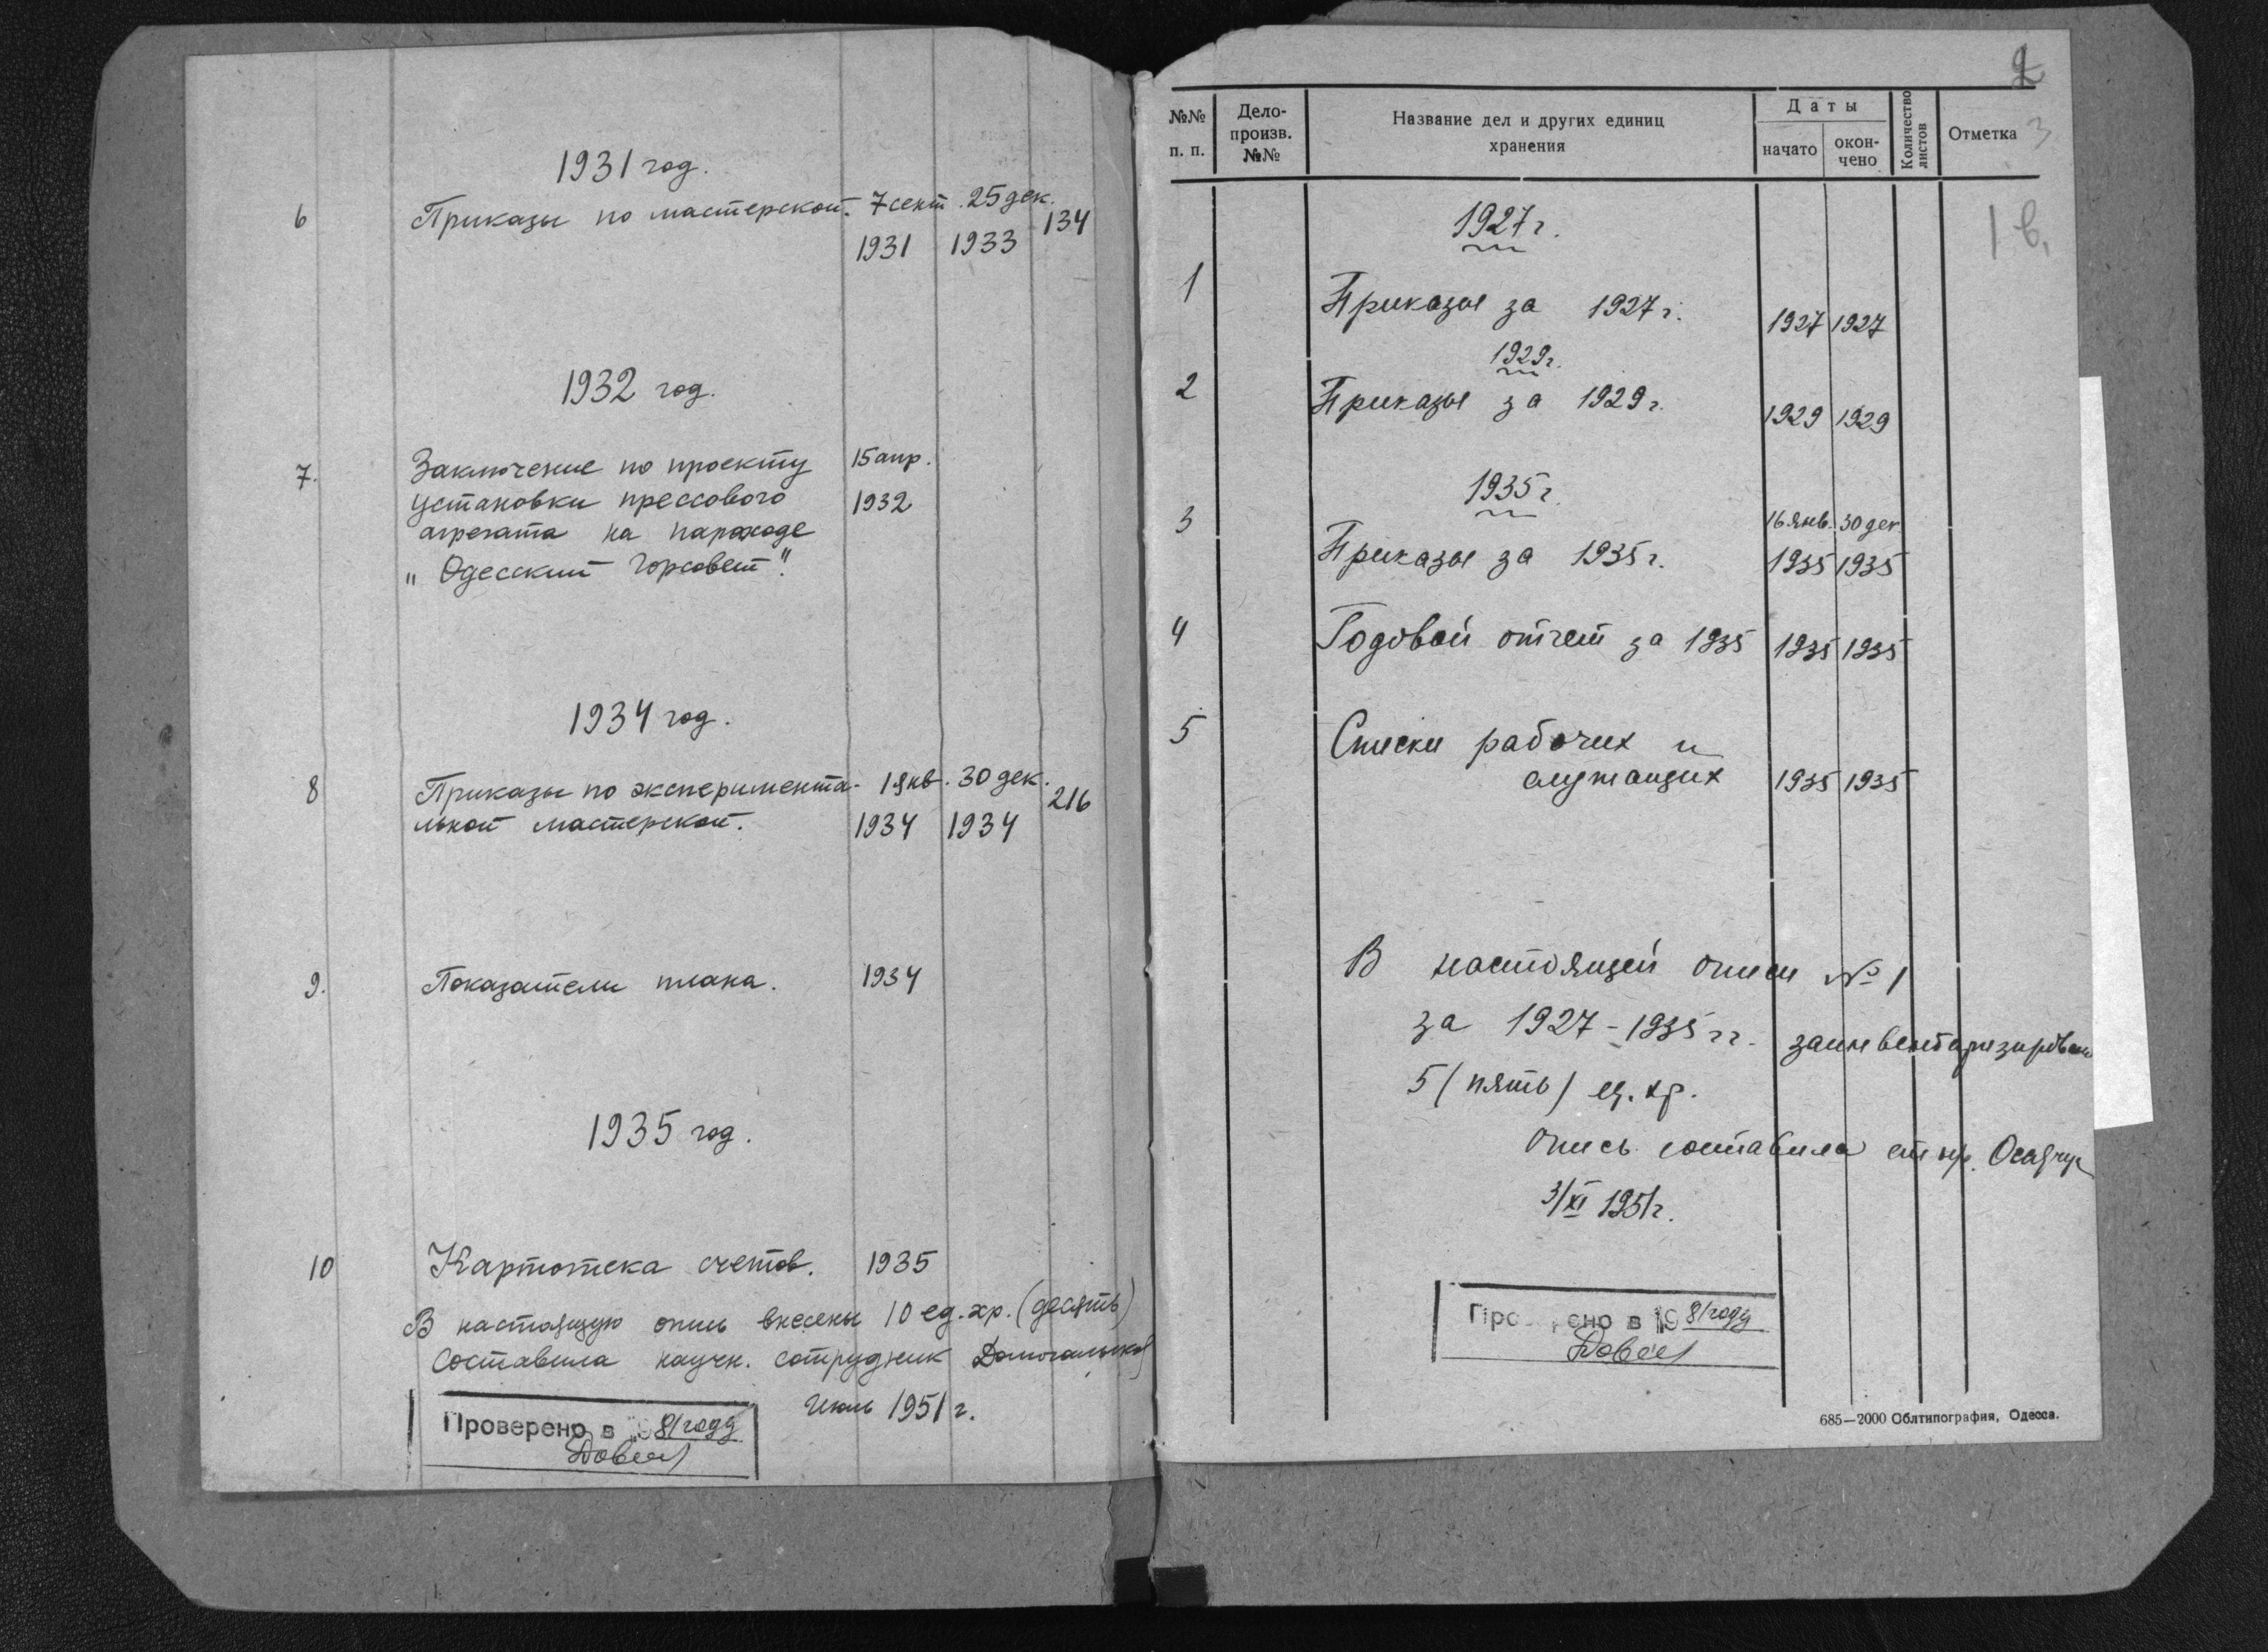 1931 год.
6 Приказы по мастерской. 7 сент. 25 дек. 134
1931 1933
1932 год.
7. Заключение по проекту 15 апр.
установки прессового 1932
агрегата на пароходе
„Одесский Горсовет".
1934 год.
8 Приказы по эксперимента- 1 янв. 30 дек. 216
льной мастерской. 1934 1934
9. Показатели плана. 1934
1935 год.
10 Картотека счетов. 1935
В настоящую опись внесены 10 ед. хр. (десять)
Составила научн. сотрудник
Июль 1951 г.
Проверено в 1981 году
2
№№ п. п.
Дело-
произв.
№№
Название дел и других единиц
хранения
Даты
начато
окон-
чено
Количество
листов
Отметка 3
1927 г.
1 Приказы за 1927 г. 1927 1927
1929 г.
2 Приказы за 1929 г. 1929 1929
1935 г.
16 янв. 30 дек
3 Приказы за 1935 г. 1935 1935
4 Годовой отчет за 1935 1935 1935
5 Списки рабочих и
служащих 1935 1935
В настоящей описи № 1
за 1927-1935 гг. заинвентаризировано
5 (пять) ед. хр.
Опись составила
3/XI 1951 г.
Проверено в 1981 году
685—2000 Облтипография, Одесса.